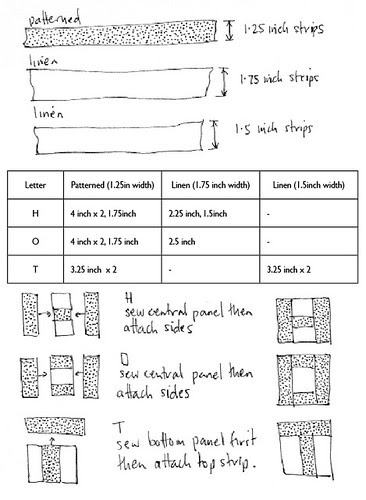 patterned
1.25 inch strips
linen
1.75 inch strips
linen
1.5 inch strips
Letter Patterned (1.25in width) Linen (1.75 inch width) Linen (1.5inch width)
H 4 inch x 2, 1.75inch 2.25 inch, 1.5inch -
O 4 inch x 2, 1.75 inch 2.5 inch -
T 3.25 inch x 2 - 3.25 inch x 2
H
sew central panel then
attach sides
O
sew central panel then
attach sides
T
sew bottom panel first
then attach top strip.